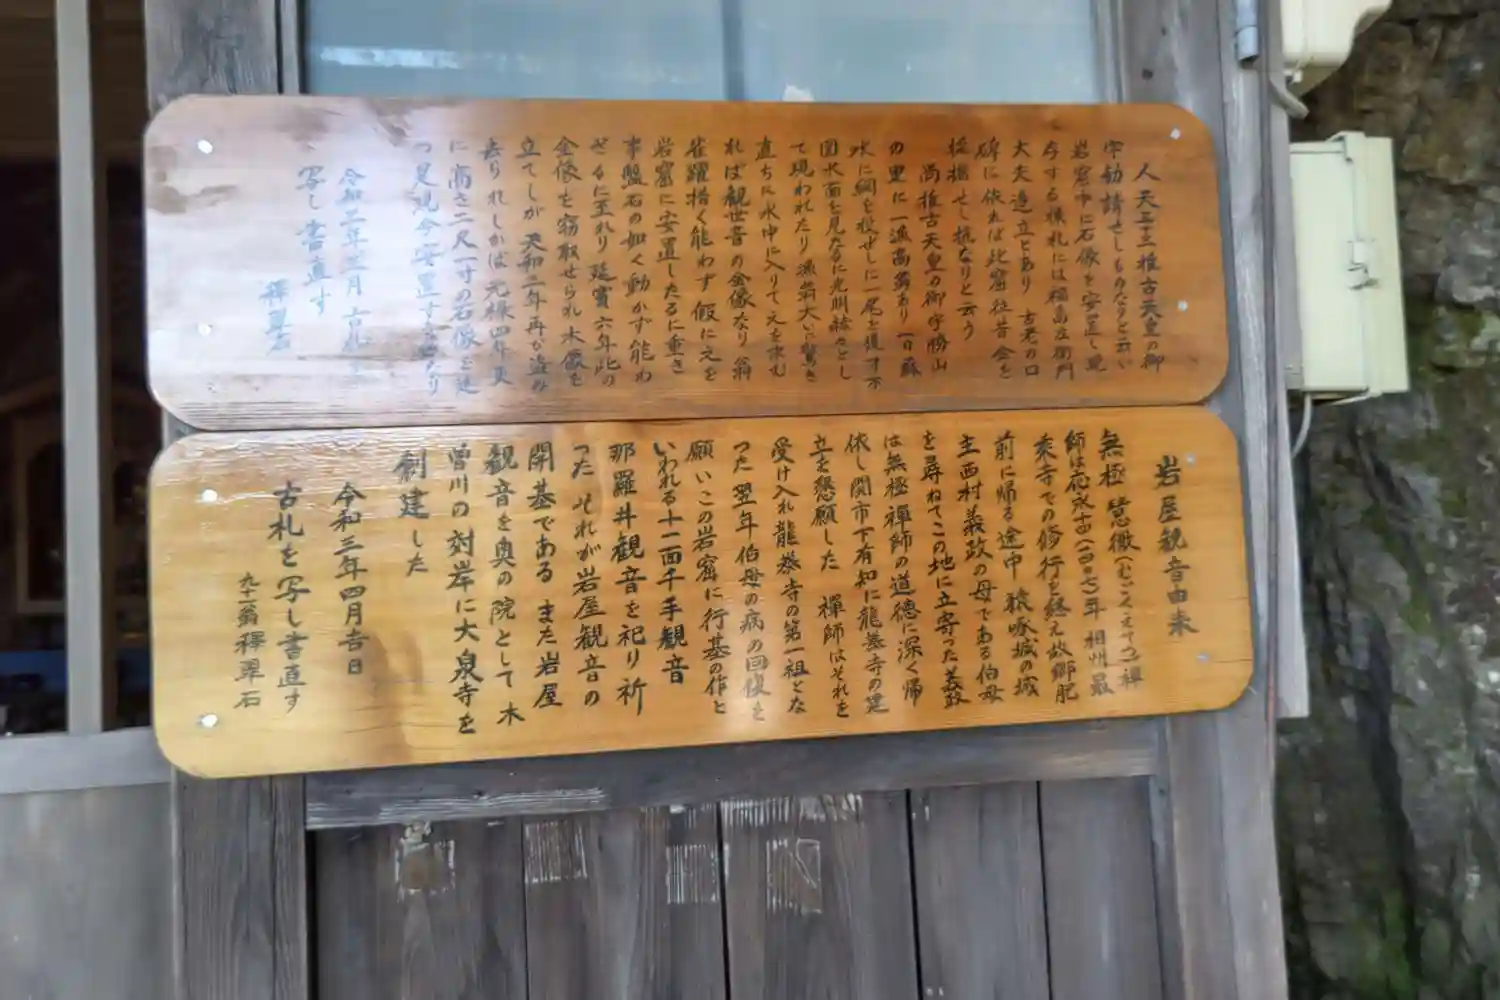 人天三十三推古天皇の御
宇勧請せしものなりと云い
岩窟中に石像を安置し現
存する棟札には福島左衛門
大夫造立とあり 古老の口
碑に依れば此窟往昔金を
採掘せし坑なりと云う
尚推古天皇の御宇勝山
の里に一漁翁あり一日蘇
水に網を投ぜしに一尾を獲ず
水面を見るに光明赫々とし
て現われたり漁翁大いに驚き
直ちに水中に入りて之を求む
れば観世音の金像なり 翁
雀躍措く能わず 仮に之を
岩窟に安置したるに重き
事盤石の如く動かず能わ
ざるに至れり 延宝六年此の
金像を窃取せられ木像を
立てしが天和二年再び盗み
去られしかば元禄四年更
に高さ二尺一寸の石像を造
つ是現今安置するなり
令和三年三月吉
写し書直す
釋翠石
岩屋観音由来
無極慧徹(むごくえてつ)禅
師は応永十四(一四〇七)年 相州最
乗寺での修行を終え故郷肥
前に帰る途中 猿啄城の城
主西村義政の母である伯母
を尋ねてこの地に立寄った 義政
は無極禅師の道徳に深く帰
依し関市下有知に龍泰寺の建
立を懇願した 禅師はそれを
受け入れ龍泰寺の第一祖とな
った 翌年伯母の病の回復を
願いこの岩窟に行基の作と
いわれる十一面千手観音
那羅井観音を祀り祈
った それが岩屋観音の
開基である また岩屋
観音を奥の院として 木
曽川の対岸に大泉寺を
創建した
令和三年四月吉日
古札を写し書直す
九十一翁釋翠石